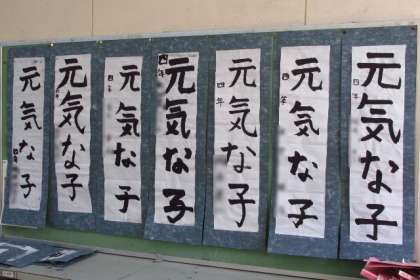 元気な子
四年
元気な子
四年
元気な子
四年
元気な子
四年
元気な子
四年
元気な子
四年
元気な子
四年